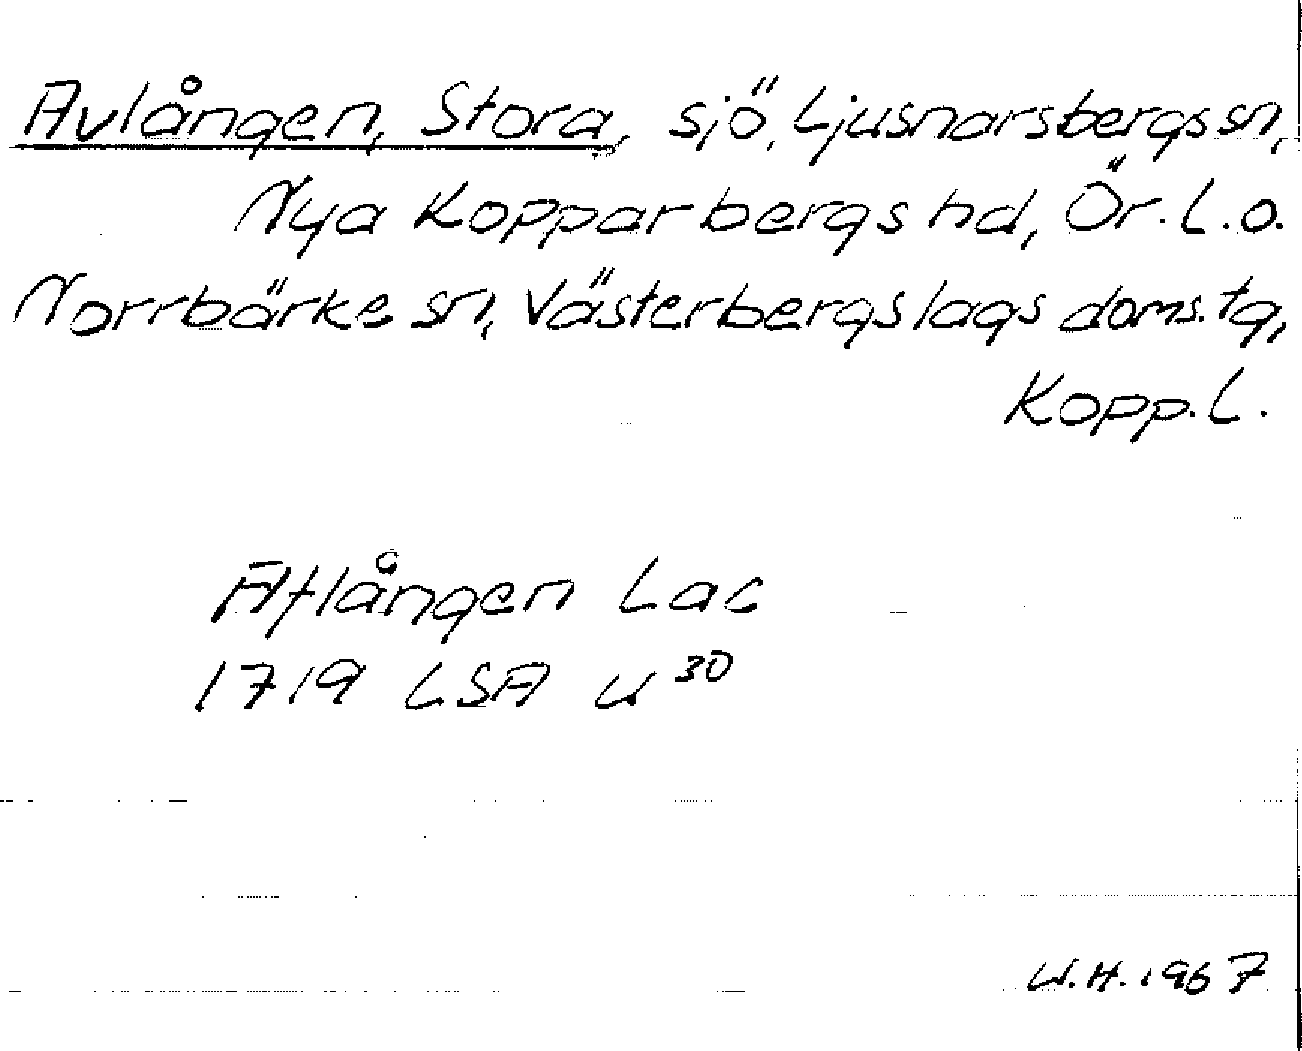 Avlången, Stora, sjö, Ljusnarsbergs sn,
Nya Kopparbergs hd, Ör. l. o.
Norrbärke sn, Västerbergslags doms. tg,
Kopp. l.
Aflången Lac
1719 LSA U 30
W.H. 1967